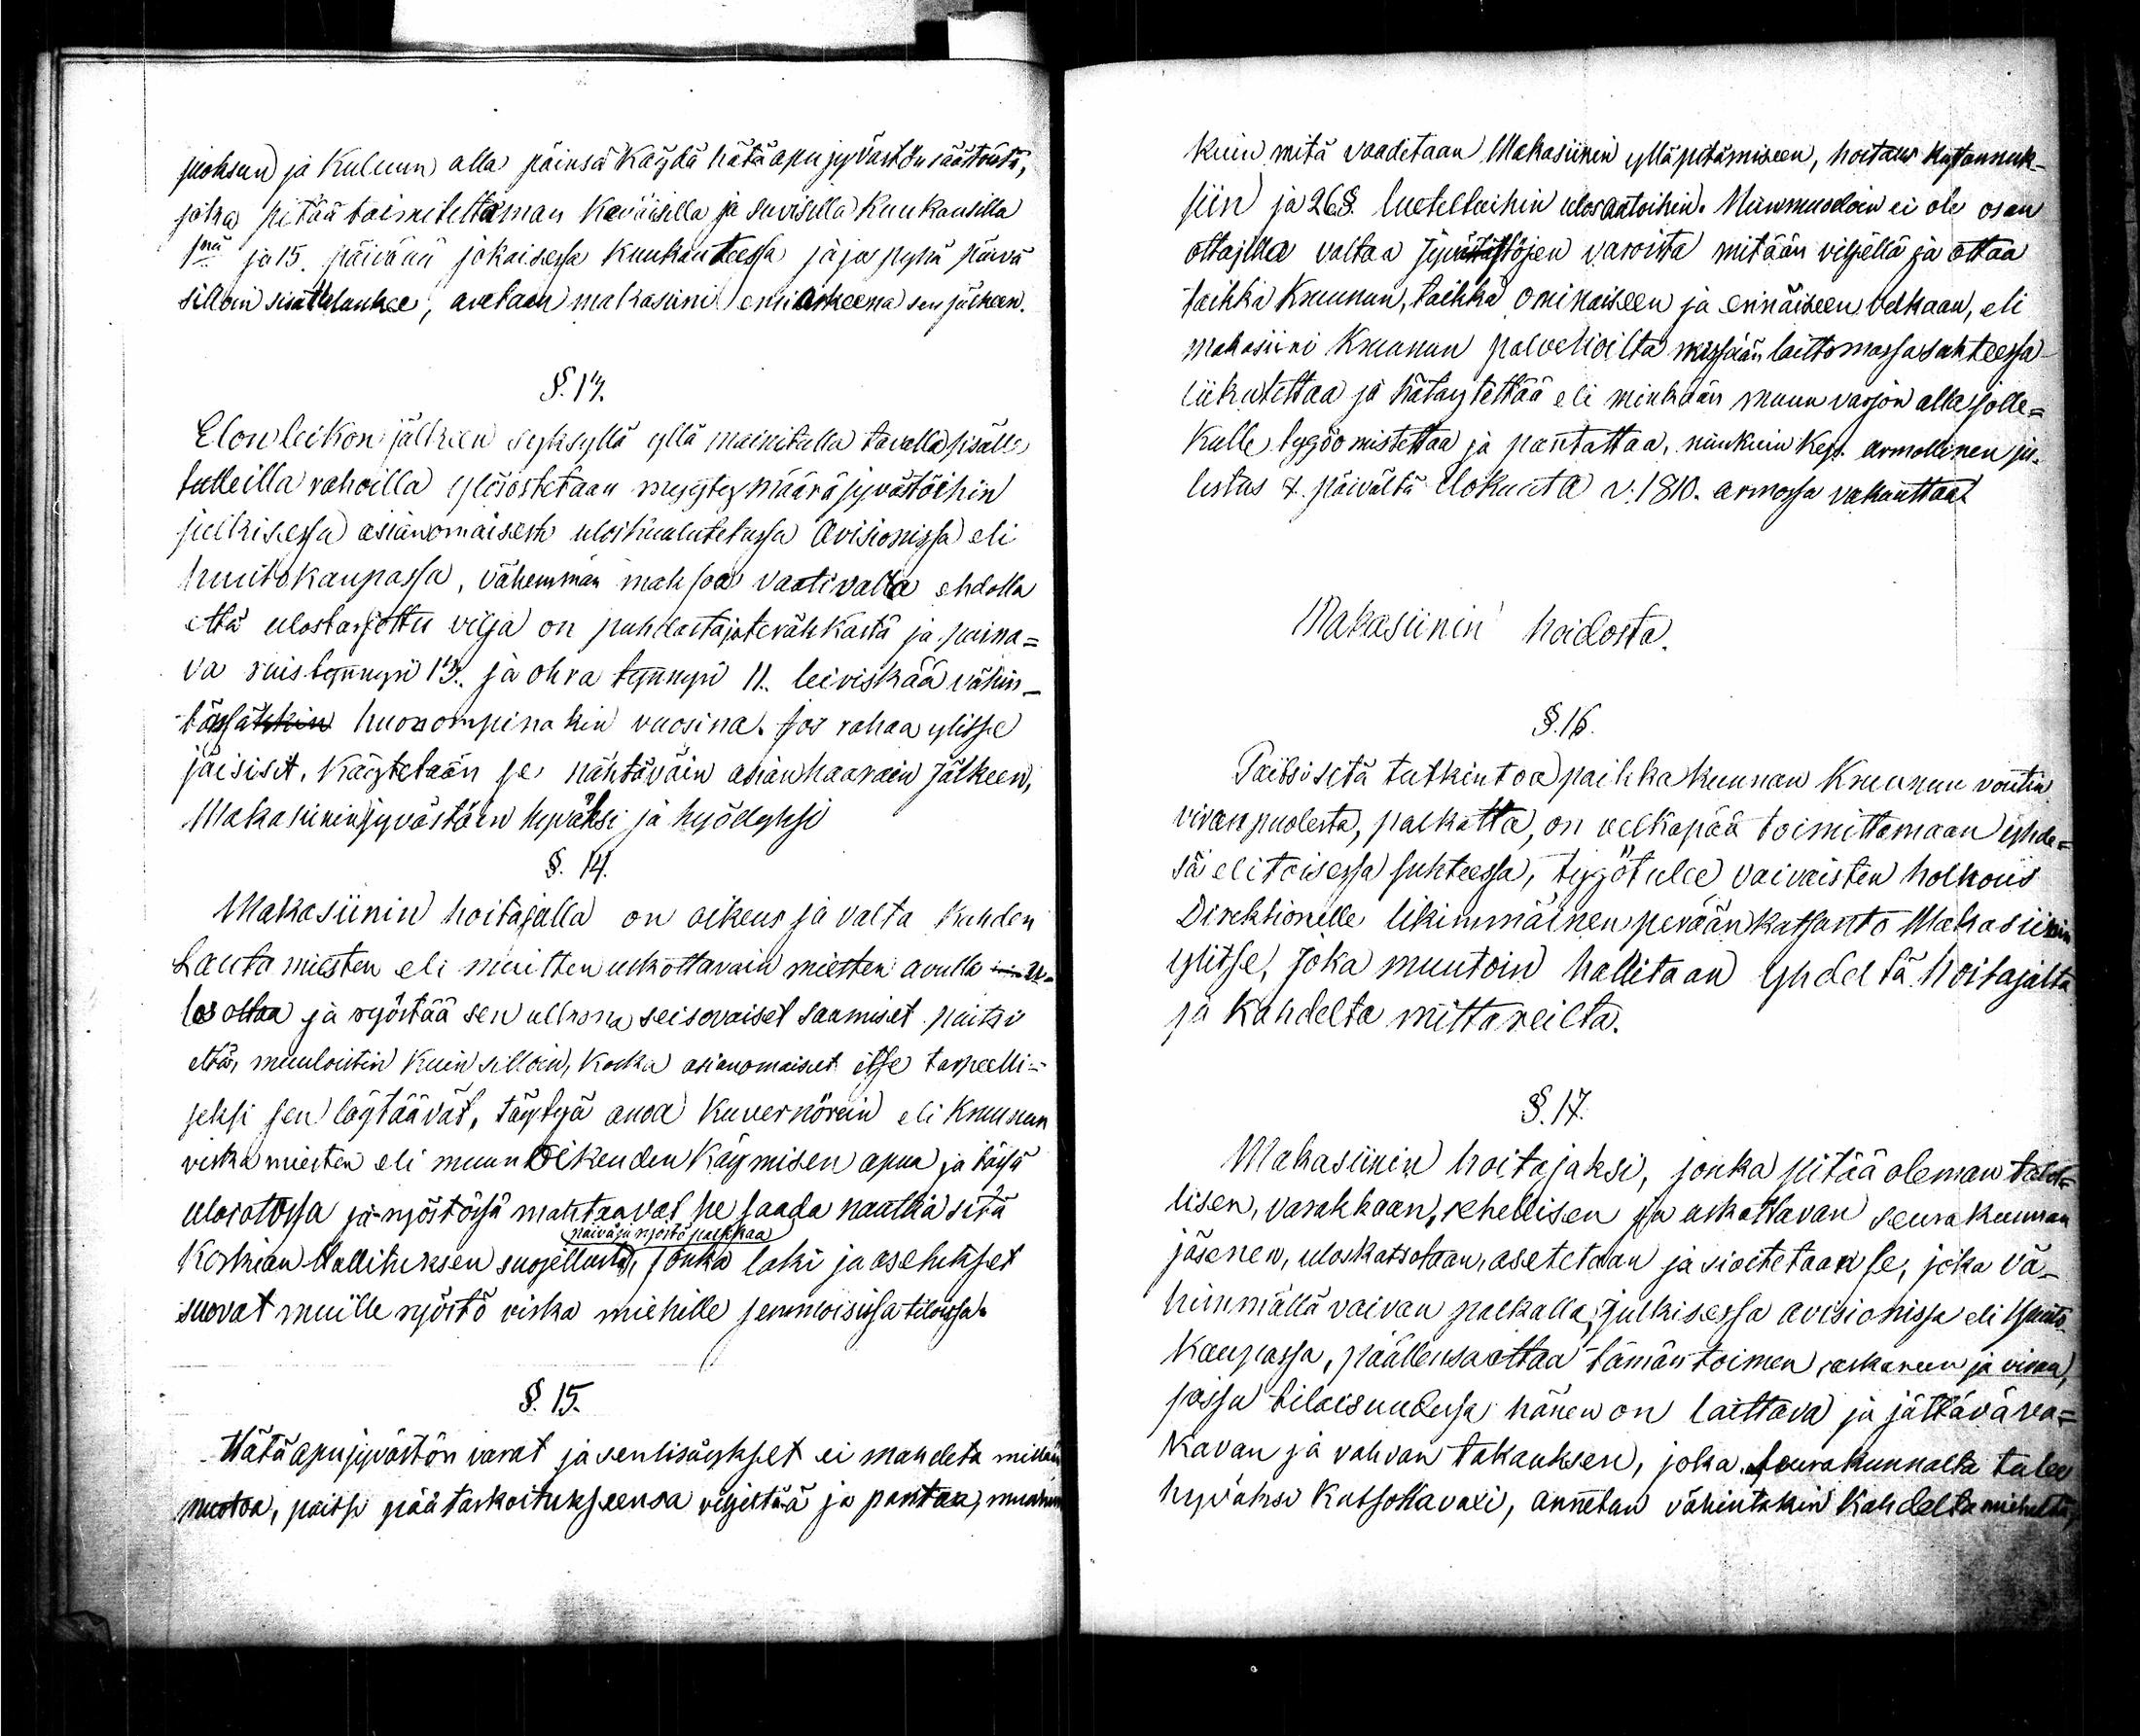 juoksun ja kuluun alla päinsä käydä hätäapu jyvästön säästöistä,
joka pitää toimitettaman keväisillä ja suvisilla kuukausilla
1nä ja 15. päivänä jokaisessa kuukauteessa ja jos pyhä päivä
silloin sisälle lankee, avetaan makasiini ensi arkeema sen jälkeen.
§. 13.
Elon leikon jälkeen syksyllä yllä mainitulla tavalla sisälle
tulleilla rahoilla ylösostetaan määrä jyvästöihin
julkisessa asianomaisesti uloskuulutetussa Avisionissa eli
huutokaupassa, vähemmän maksoa vaativalla ehdolla
että ulostarjottu vilja on puhdasta ja terähkästä ja paina=
va ruis tynnyri 13. ja ohra tynnyri 11. leiviskää vähin-
tänsäkkin huonompinakin vuosina. Jos rahaa ylitse
jäisisit, käytetään se nähtäväin asianhaarain jälkeen,
Makasiinin jyvästöin hyväksi ja hyödyksi
§. 14.
Makasiinin hoitajalla on oikeus ja valta kahden
Lautamiesten eli muitten uskottavain miesten avulla u-
los ottaa ja ryöstää sen ulkona seisovaiset saamiset paitsi
että, muuloinkin kuin silloin, koska asianomaiset itse tarpeelli=
seksi sen löytäävät, täytyä anoa Kuvernörein eli Kruunun
virka miesten eli muun oikeuden käymisen apua ja tässä
ulosotossa ja ryöstössä mahtaavat he saada nauttia sitä
päivä ja ryöstö palkkaa
Korkian Hallituksen suojellusta, jonka laki ja asetukset
suovat muille ryöstö virka miehille semmoisissa tiloissa.
§. 15.
Hätäapujyvästön varat ja sen lisäykset ei mahdeta millän
muotoa, paitsi päätarkoitukseensa viljeltää ja pantaa, muuhun
kuin mitä vaaditaan Makasiinin ylläpitämiseen, hoitaus kustannuk-
siin ja 26 §. lueteltuihin ulosantoihin. Niinmuodoin ei ole osan
ottajilla valtaa Jyvästöjen varoista mitään viljellä ja ottaa
taikka Kruunun, taikka ominaiseen ja erinäiseen velkaan, eli
makasiini Kruunun palvelioilta missään laittomassa suhteessa
liikutettaa ja hätäytettää eli minkään muun varjon alla jolle=
kulle tygöomistettaa ja pantattaa, niinkuin Keis. armollinen ju-
listus 7. päivältä Elokuuta v. 1810. armossa vakauttaa.
Makasiinin hoidosta.
§. 16.
Paitsi sitä tutkintoa paikkakunnan Kruunun voutin
viran puolesta, palkatta, on velkapää toimittamaan yhde=
sä eli toisessa suhteessa, tygötulee vaivaisten holhous
Direktionille likimmäinen perään katsanto Makasiinin
ylitse, joka muutoin hallitaan yhdeltä hoitajalta
ja kahdelta mittareilta.
§. 17.
Makasiinin hoitajaksi, jonka pitää oleman
lisen, varakkaan, rehellisen ja uskottavan seurakunnan
jäsenen, uloskatsotaan, asetetaan ja sioitetaan se, joka vä-
himmällä vaivan palkalla, julkisessa avisionissa eli huuto-
kaupassa, päällensä ottaa tämän toimen, askareen ja viran,
jossa tilaisuudessa hänen on laittava ja jättävä va=
kavan ja vahvan takauksen, joka seurakunnalta tulee
hyväksi katsottavaxi, annetan vähintäkin kahdelta mieheltä,